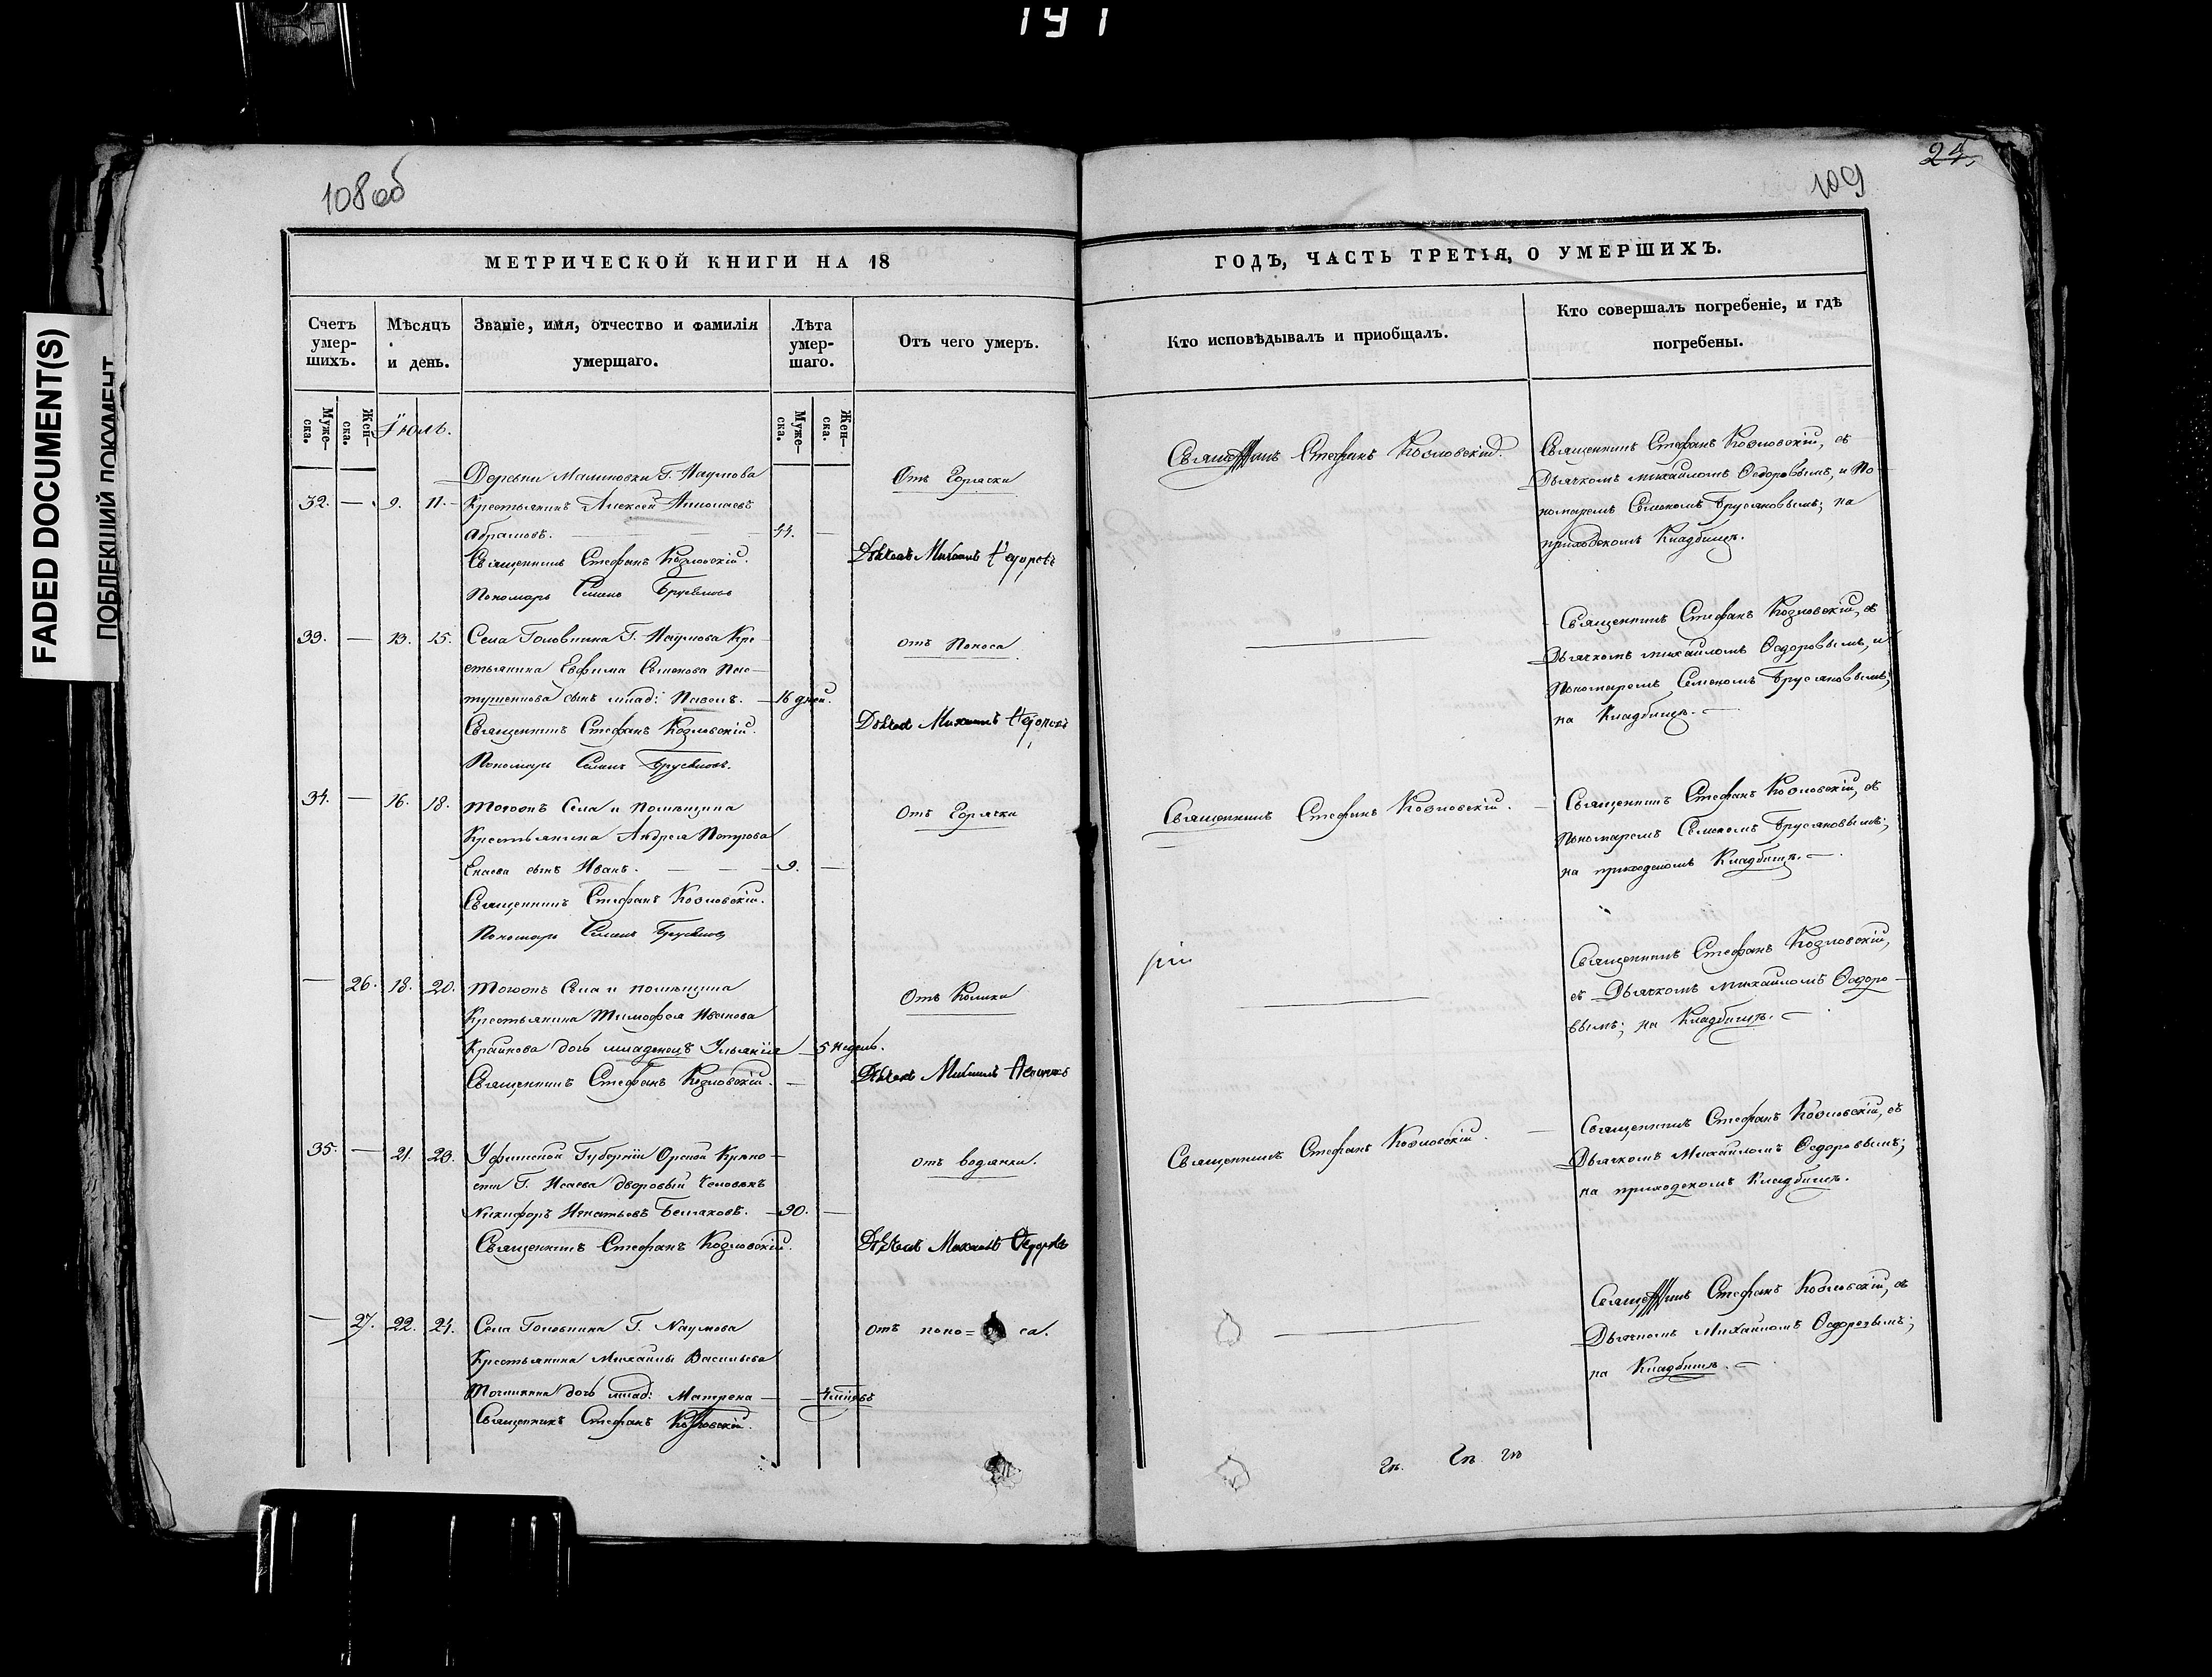 191
FADED DOCUMENT(S)
ПОБЛЕКШИЙ ДОКУМЕНТ
108об
МЕТРИЧЕСКОЙ КНИГИ НА 18
Счетъ умер-шихъ.
Мѣсяцъ и день.
Званіе, имя, отчество и фамилія умершаго.
Лѣта умер-шаго.
Отъ чего умеръ.
Муже-ска.
Жен-ска.
Муже-ска.
Жен-ска.
Іюль.
Деревни Малиновки Г. Наумова
32. — 9. 11. Крестьянинъ Алексей
Абрамовъ. — 44. —
Отъ Горячки
Священникъ Стефанъ Козловскій.
Дьячекъ Михаилъ Федоровъ
Пономарь Семенъ
33. — 13. 15. Села Головина Г. Наумова Кре-
стьянина Евфима Семенова
сынъ млад: Павелъ. — 16 дней.
отъ Поноса
Священникъ Стефанъ Козловскій.
Дьячекъ Михаилъ Федоровъ
Пономарь Семенъ
34. — 16. 18. Тогожъ Села и помѣщика
Крестьянина Андрея Петрова
сынъ Иванъ. — 9. —
Отъ Горячки
Священникъ Стефанъ Козловскій.
Пономарь Семенъ
— 26. 18. 20. Тогожъ Села и помѣщика
Крестьянина Тимофея Иванова
Крайнова дочь младенецъ Ульянія — 5 недель.
Отъ Колики
Священникъ Стефанъ Козловскій. —
Дьячекъ Михаилъ Федоровъ
35. — 21. 23. Уфимской Губерніи Орской Крѣпо-
сти Г. Исаева дворовый Человѣкъ
Никифоръ Игнатьевъ — 90. —
отъ водянки.
Священникъ Стефанъ Козловскій.
Дьячекъ Михаилъ Федоровъ
— 27. 22. 24. Села Головина Г. Наумова
Крестьянина Михаилы Васильева
дочь млад: Матрена —
отъ поно= са.
Священникъ Стефанъ Козловскій.
24.
109
ГОДЪ, ЧАСТЬ ТРЕТІЯ, О УМЕРШИХЪ.
Кто исповѣдывалъ и приобщалъ.
Кто совершалъ погребеніе, и гдѣ погребены.
Священникъ Стефанъ Козловскій.
Священникъ Стефанъ Козловскій, съ
Дьячкомъ Михаиломъ Ѳедоровымъ, и По-
номаремъ Семеномъ Брусяновымъ; на
приходскомъ Кладбищѣ.
Священникъ Стефанъ Козловскій, съ
Дьячкомъ Михаиломъ Ѳедоровымъ, и
Пономаремъ Семеномъ Брусяновымъ;
на Кладбищѣ. —
Священникъ Стефанъ Козловскій. —
Священникъ Стефанъ Козловскій, съ
Пономаремъ Семеномъ Брусяновымъ;
на приходскомъ Кладбищѣ. —
Священникъ Стефанъ Козловскій,
съ Дьячкомъ Михаиломъ Ѳедоро-
вымъ; на Кладбищѣ. —
Священникъ Стефанъ Козловскій. —
Священникъ Стефанъ Козловскій, съ
Дьячкомъ Михаиломъ Ѳедоровымъ;
на приходскомъ Кладбищѣ.
Священникъ Стефанъ Козловскій, съ
Дьячкомъ Михаиломъ Ѳедоровымъ;
на Кладбищѣ. —